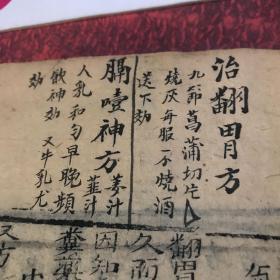 治翻胃方
九節菖蒲切片
燒灰每服一个燒酒
送下効
膈噎神方
姜汁
韮汁
人乳和勻早晚頻
飲神効 又牛乳尤
効
翻胃
久而
因知
糞藥
又方